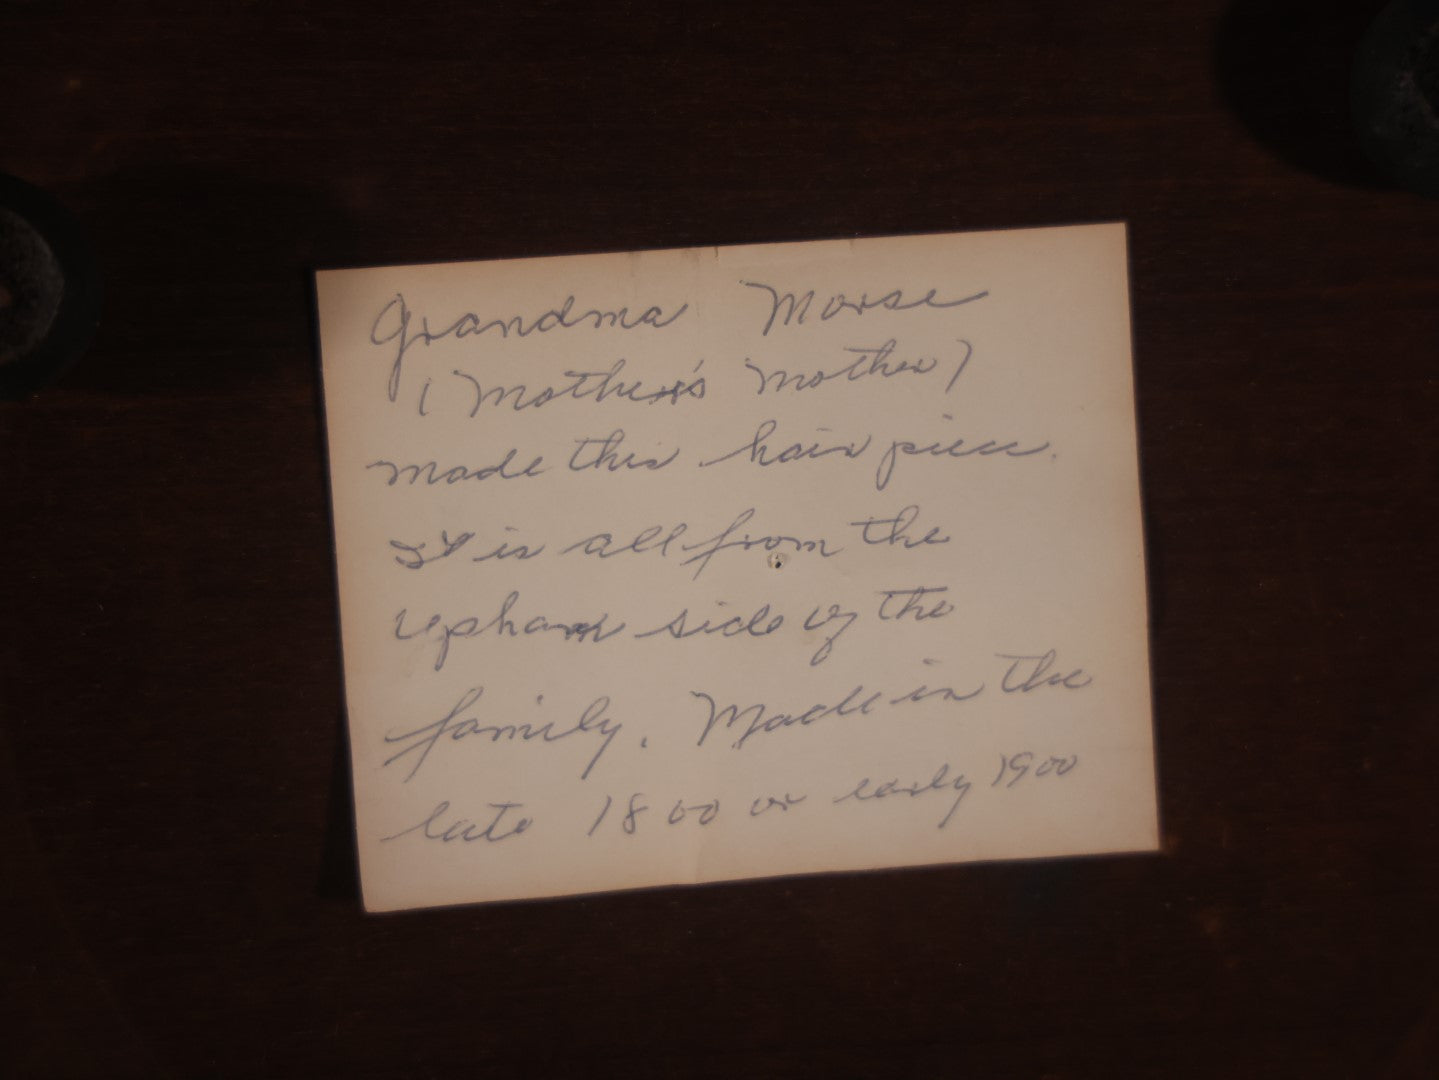 Grandma Morse
(Mother's Mother)
made this hair piece.
It is all from the
Upham side of the
family. Made in the
late 1800 or early 1900